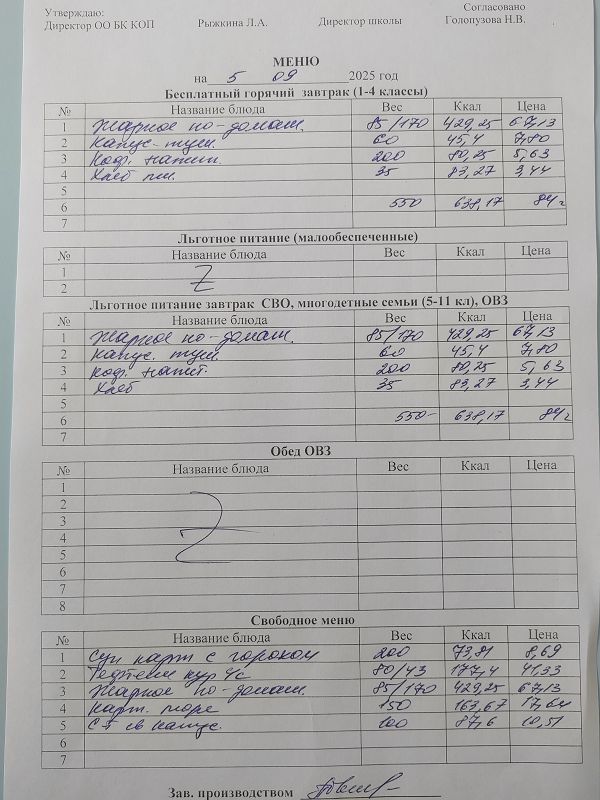 Утверждаю: Согласовано
Директор ОО БК КОП Рыжкина Л.А. Директор школы Голопузова Н.В.
МЕНЮ
на 5 09 2025 год
Бесплатный горячий завтрак (1-4 классы)
№ Название блюда Вес Ккал Цена
1 Жаркое по-домаш. 85/170 429,25 67,13
2 Капус. туш. 60 45,4 7,80
3 Коф. напит. 200 80,25 5,63
4 Хлеб пш. 35 83,27 3,44
5
6 550 638,17 84
7
Льготное питание (малообеспеченные)
№ Название блюда Вес Ккал Цена
1
2
Льготное питание завтрак СВО, многодетные семьи (5-11 кл), ОВЗ
№ Название блюда Вес Ккал Цена
1 Жаркое по-домаш. 85/170 429,25 67,13
2 Капус. туш. 60 45,4 7,80
3 Коф. напит. 200 80,25 5,63
4 Хлеб 35 83,27 3,44
5
6 550- 638,17 84
7
Обед ОВЗ
№ Название блюда Вес Ккал Цена
1
2
3
4
5
6
7
8
Свободное меню
№ Название блюда Вес Ккал Цена
1 Суп карт с горохом 200 73,81 8,69
2 кур 80/43 177,4 41,33
3 Жаркое по-домаш. 85/170 429,25 67,13
4 Карт. пюре 150 163,67 17,64
5 С-т св капус. 100 87,6 10,51
6
7
Зав. производством